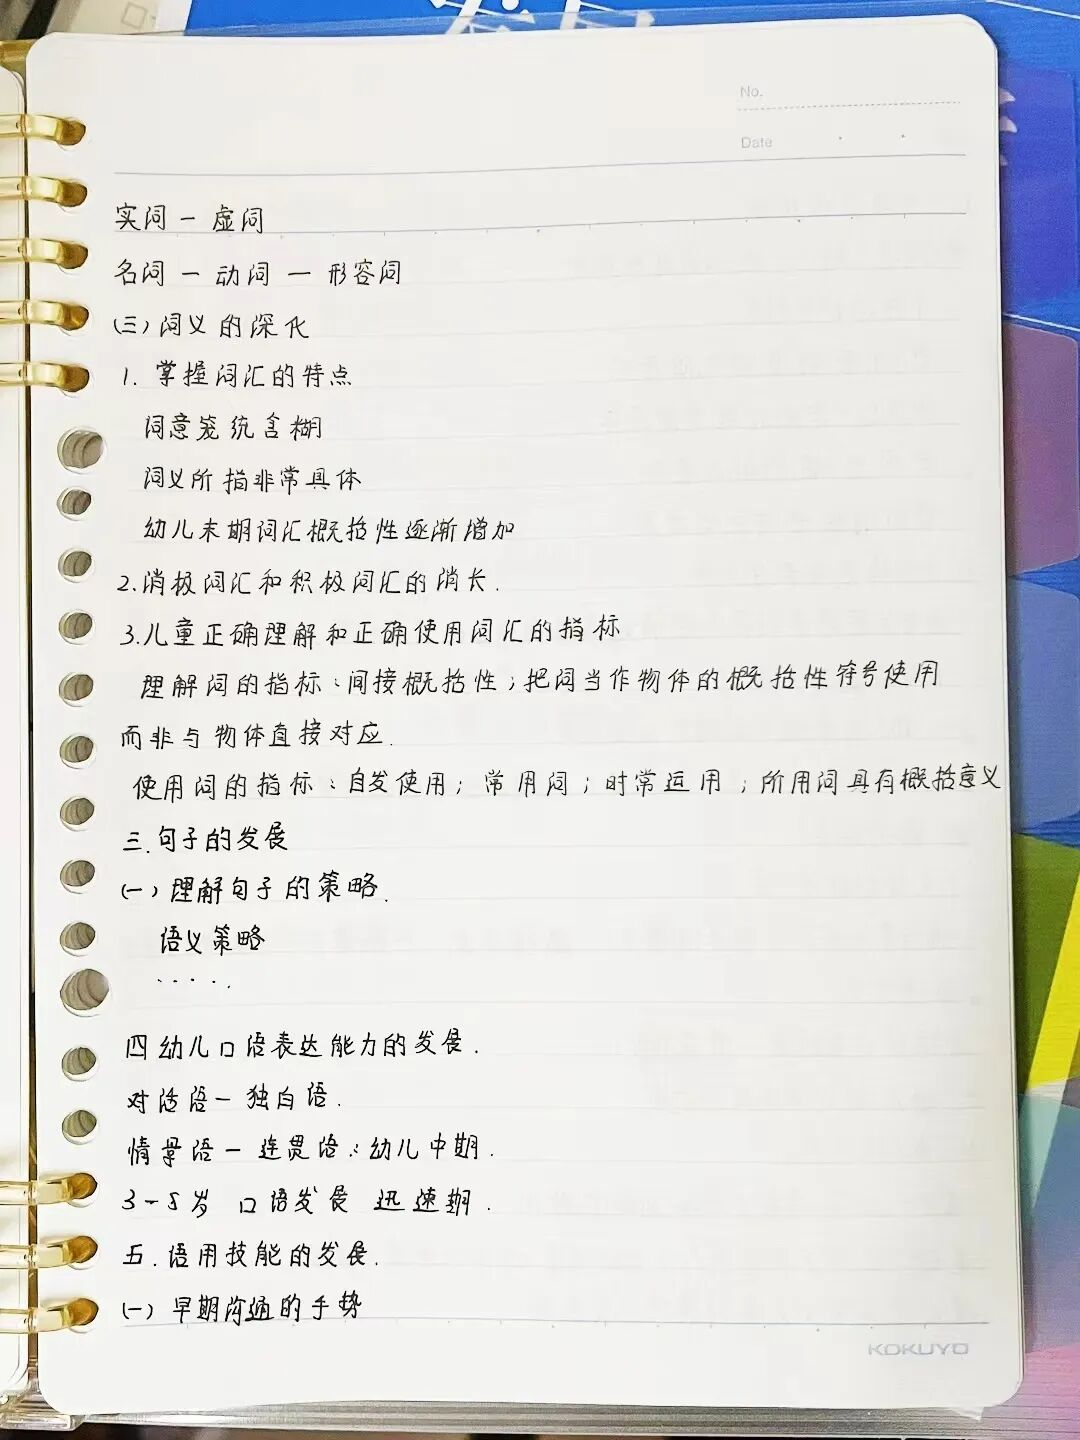 发展
No.
Date
实词 — 虚词
名词 — 动词 — 形容词
(三)词义的深化
1. 掌握词汇的特点
词意笼统含糊
词义所指非常具体
幼儿末期词汇概括性逐渐增加
2.消极词汇和积极词汇的消长.
3.儿童正确理解和正确使用词汇的指标
理解词的指标:间接概括性;把词当作物体的概括性符号使用
而非与物体直接对应.
使用词的指标:自发使用;常用词;时常运用;所用词具有概括意义
三.句子的发展
(一)理解句子的策略.
语义策略
.....
四幼儿口语表达能力的发展.
对话语—独白语.
情景语—连贯语:幼儿中期.
3-5岁 口语发展 迅速期.
五.语用技能的发展.
(一)早期沟通的手势
KOKUYO